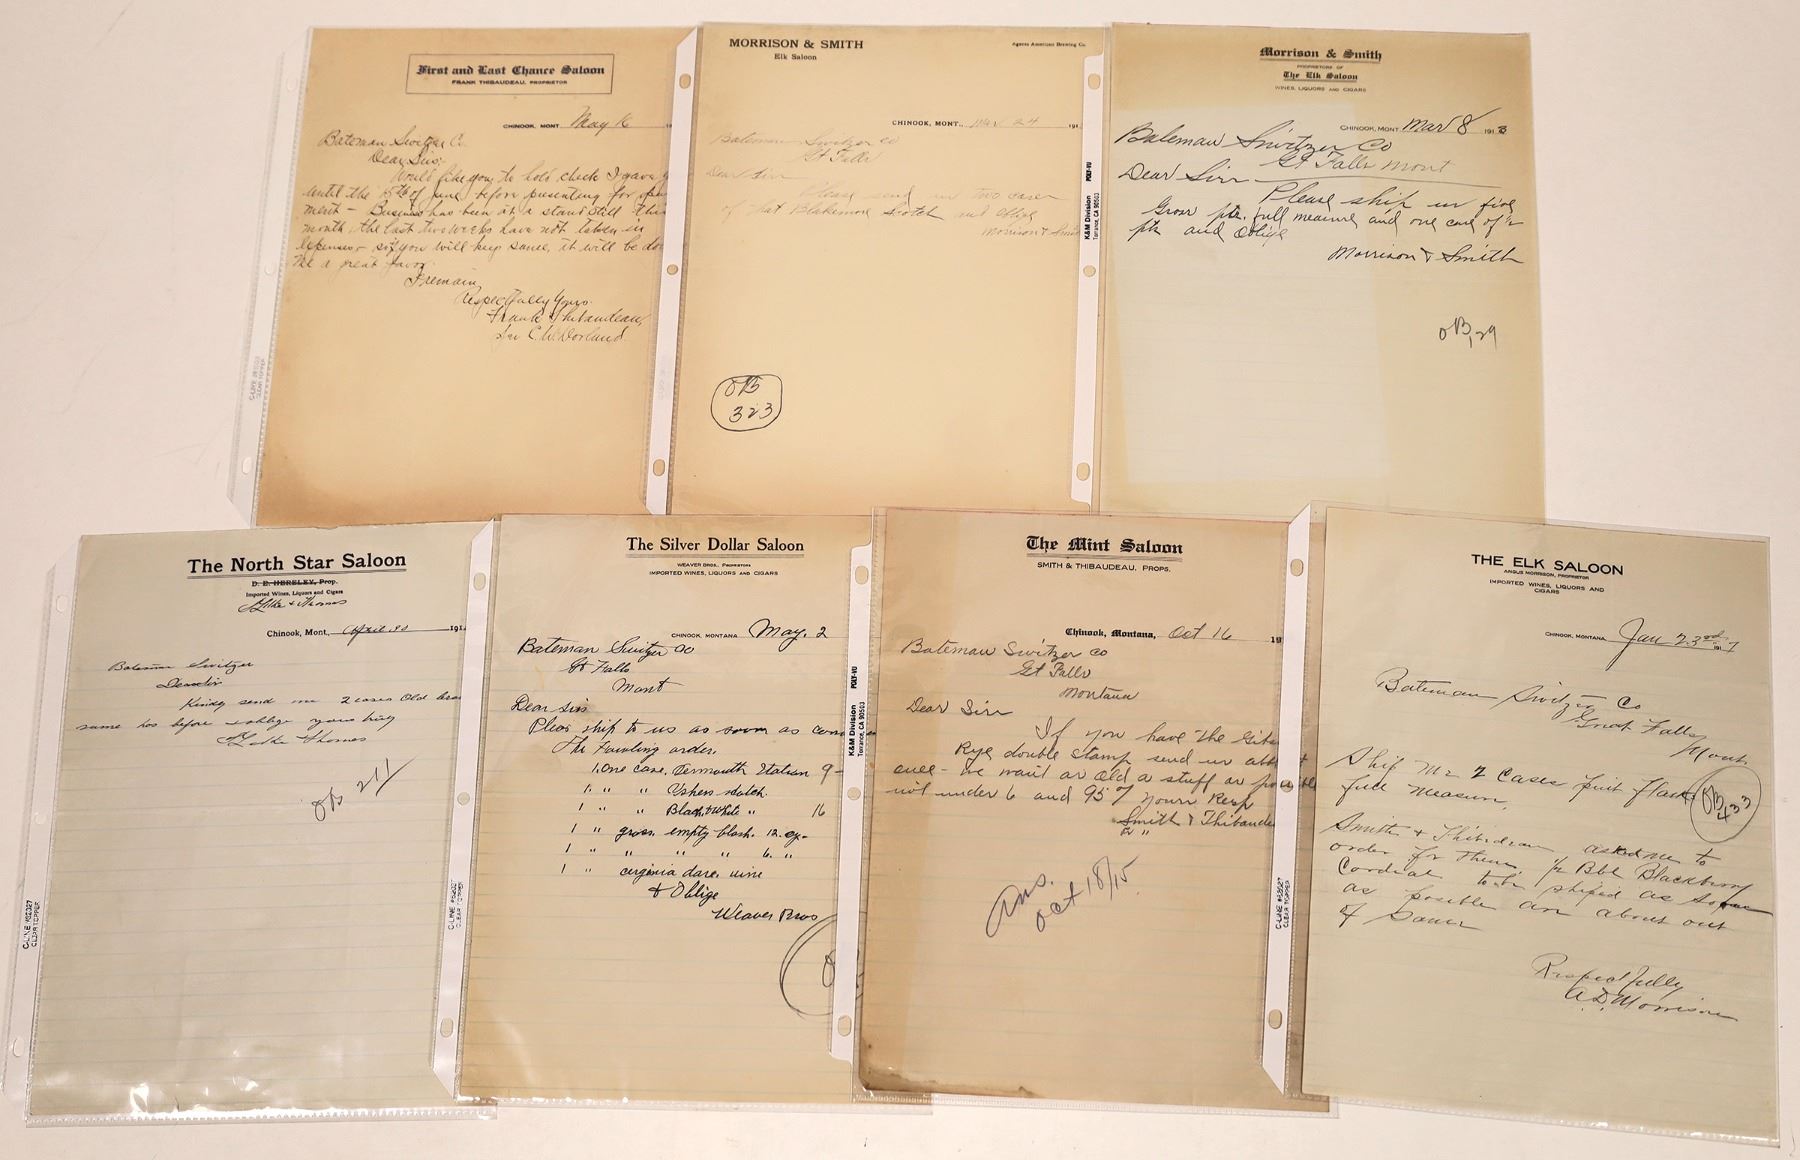 First and Last Chance Saloon
FRANK THIBAUDEAU, PROPRIETOR
CHINOOK, MONT. May 16
Bateman Switzer C.
Dear Sirs:-
Would like you to hold check I gave
until the 15th of June before presenting for
ment - Business has been at a stand still this
month, the last two weeks have not taken in
expenses - so if you will keep same, it will be
me a great favor.
I remain
Respectfully Yours.
Frank Thibaudeau,
C.W. Dorland
C-LINE
CLEAR TOPPER
MORRISON & SMITH
Elk Saloon
Agents American Brewing Co.
CHINOOK, MONT., Mar 24 191
Bateman Switzer Co
Gt Falls
Dear Sirr
Please send us two cases
of that Blakemore Scotch and oblige
Morrison & Smith
OB
323
K&M Division POLY-VU
Torrance, CA 90503
Morrison & Smith
PROPRIETORS OF
The Elk Saloon
WINES, LIQUORS AND CIGARS
CHINOOK, MONT Mar 8 191
Bateman Switzer Co
Gt Falls Mont
Dear Sirr
Please ship us five
Gross pts. full measure and one case of 1/2
pts and oblige
Morrison & Smith
OB, 29
The North Star Saloon
D. E. HERELEY, Prop.
Imported Wines, Liquors and Cigars
& Thomas
Chinook, Mont., April 30 191
Bateman Switzer
Dear Sir
Kindly send me 2 cases Old
same has before & oblige yours truly
& Thomas
OB 211
C-LINE #52327
CLEAR TOPPER
The Silver Dollar Saloon
WEAVER BROS., PROPRIETORS
IMPORTED WINES, LIQUORS AND CIGARS
CHINOOK, MONTANA May. 2
Bateman Switzer Co
Gt Falls
Mont
Dear Sirs
Pleas ship to us as soon as
the following order.
1. One case. Vermouth Italian 9-
1. " " Ushers scotch.
1 " " Black & White " 16
1 " gross empty flask. 12. oz-
1 " " " " 6. "
1 " virginia dare wine
& Oblige
Weaver Bros
OB
K&M Division POLY-VU
Torrance, CA 90503
C-LINE #52527
CLEAR TOPPER
The Mint Saloon
SMITH & THIBAUDEAU, PROPS.
Chinook, Montana, Oct 16 19
Bateman Switzer Co
Gt Falls
Montana
Dear Sirr
If you have the
Rye double stamp send us
once - we want as old a stuff as
not under 6 and 95% Yours Resp
Smith & Thibaude
Ans.
Oct 18/15
C-LINE #52527
CLEAR TOPPER
THE ELK SALOON
ANGUS MORRISON, PROPRIETOR
IMPORTED WINES, LIQUORS AND
CIGARS
CHINOOK, MONTANA, Jan 23rd 1917
Bateman Switzer Co
Great Falls
Mont
Ship Me 2 Cases pint flask
full measure,
OB
433
Smith & Thibideau asked me to
order for them, 1/2 Bbl Blackberry
Cordial to be shiped as soon
as possible are about out
of same
Respectfully
A.D. Morrison